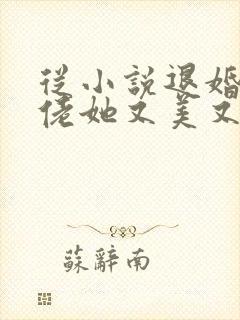 從小說退婚
佬她又美又
蘇辭南